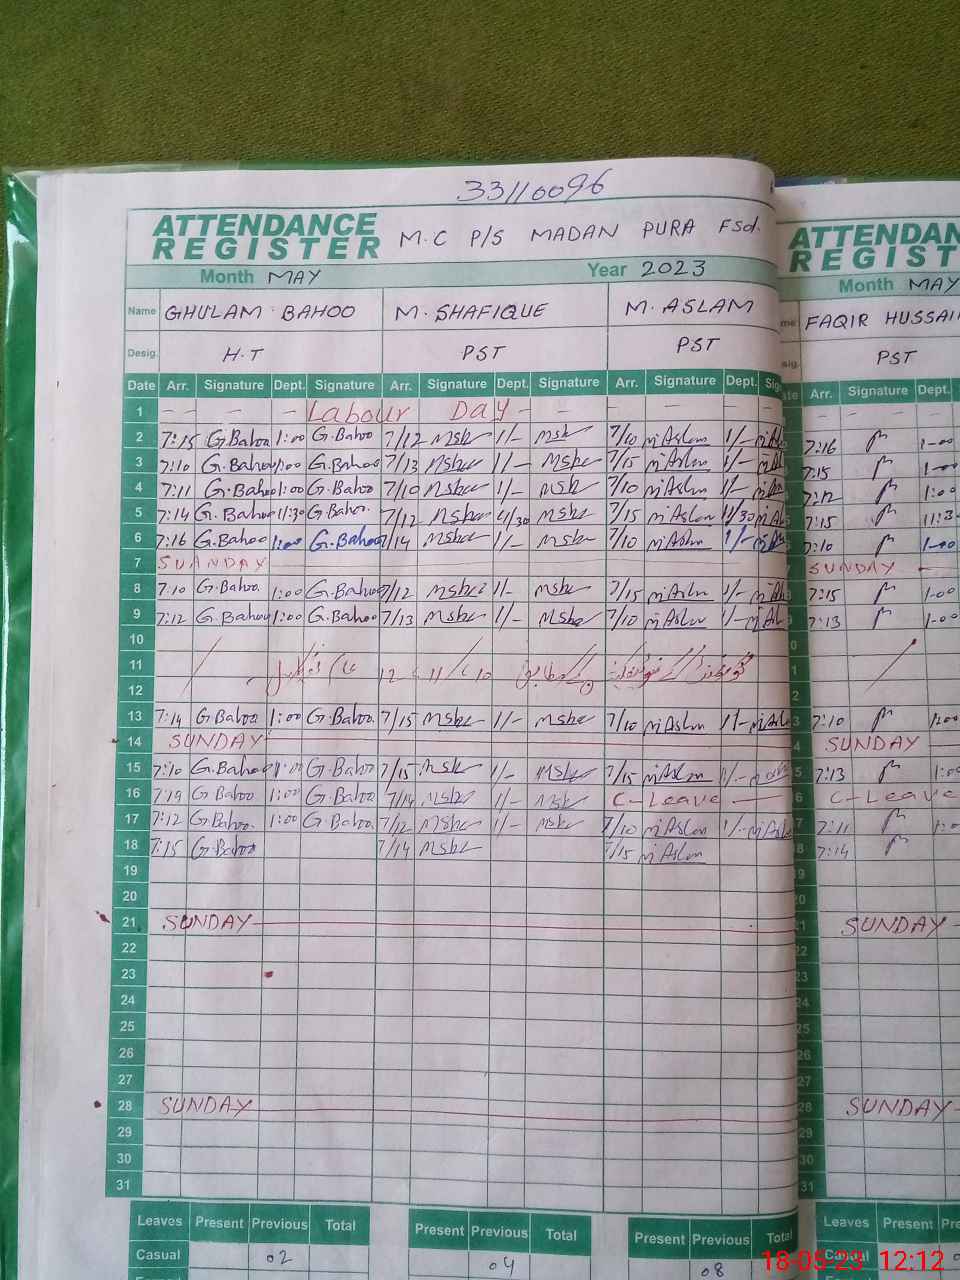 33110096
ATTENDANCE REGISTER M.C P/S MADAN PURA Fsd.
Month MAY Year 2023
Name GHULAM BAHOO M. SHAFIQUE M. ASLAM
Desig. H.T PST PST
Date Arr. Signature Dept. Signature Arr. Signature Dept. Signature Arr. Signature Dept.
1 Labour DAY
2 7:15 G.Bahoo 1:00 G.Bahoo 7/12 1/- 7/10 M.Aslam 1/-
3 7:10 G.Bahoo 1:00 G.Bahoo 7/13 1/- 7/15 M.Aslam 1/-
4 7:11 G.Bahoo 1:00 G.Bahoo 7/10 1/- 7/10 M.Aslam 1/-
5 7:14 G.Bahoo 11:30 G.Bahoo 7/12 11/30 7/15 M.Aslam 11/30
6 7:16 G.Bahoo 1:00 G.Bahoo 7/14 1/- 7/10 M.Aslam 1/-
7 SUANDAY
8 7:10 G.Bahoo 1:00 G.Bahoo 7/12 1/- 7/15 M.Aslam 1/-
9 7:12 G.Bahoo 1:00 G.Bahoo 7/13 1/- 7/10 M.Aslam 1/-
10
11
12
13 7:14 G.Bahoo 1:00 G.Bahoo 7/15 1/- 7/10 M.Aslam 1/-
14 SUNDAY
15 7:10 G.Bahoo 1:00 G.Bahoo 7/15 1/- 7/15 M.Aslam 1/-
16 7:19 G.Bahoo 1:00 G.Bahoo 7/14 1/- C-Leave
17 7:12 G.Bahoo 1:00 G.Bahoo 7/12 1/- 7/10 M.Aslam 1/-
18 7:15 G.Bahoo 7/14 7/15 M.Aslam
19
20
21 SUNDAY
22
23
24
25
26
27
28 SUNDAY
29
30
31
Leaves Present Previous Total Present Previous Total Present Previous Total
Casual 02 04 08
ATTENDAN
REGIST
Month MAY
FAQIR HUSSAI
PST
Arr. Signature Dept.
7:16 1-00
7:15 1-00
7:12 1:00
7:15 11:3
7:10 1-00
SUNDAY
7:15 1-00
7:13 1-00
7:10 1:00
SUNDAY
7:13 1:0
C-Leave
7:11 1:0
7:14
SUNDAY
SUNDAY
Leaves Present
Casual
18-05-23 12:12